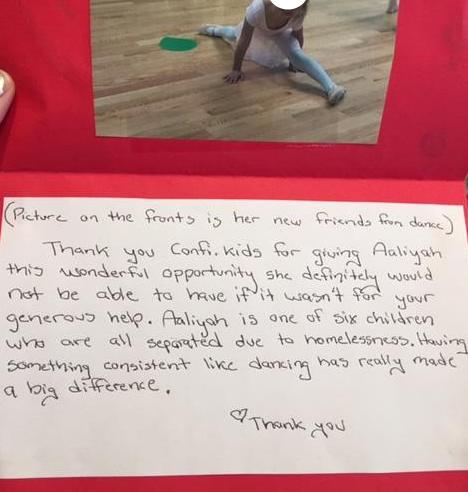 (Picture on the fronts is her new friends from dance)
Thank you Confi.Kids for giving Aaliyah
this wonderful opportunity she definitely would
not be able to have if it wasn't for your
generous help. Aaliyah is one of six children
who are all separated due to homelessness. Having
something consistent like dancing has really made
a big difference.
♡Thank you